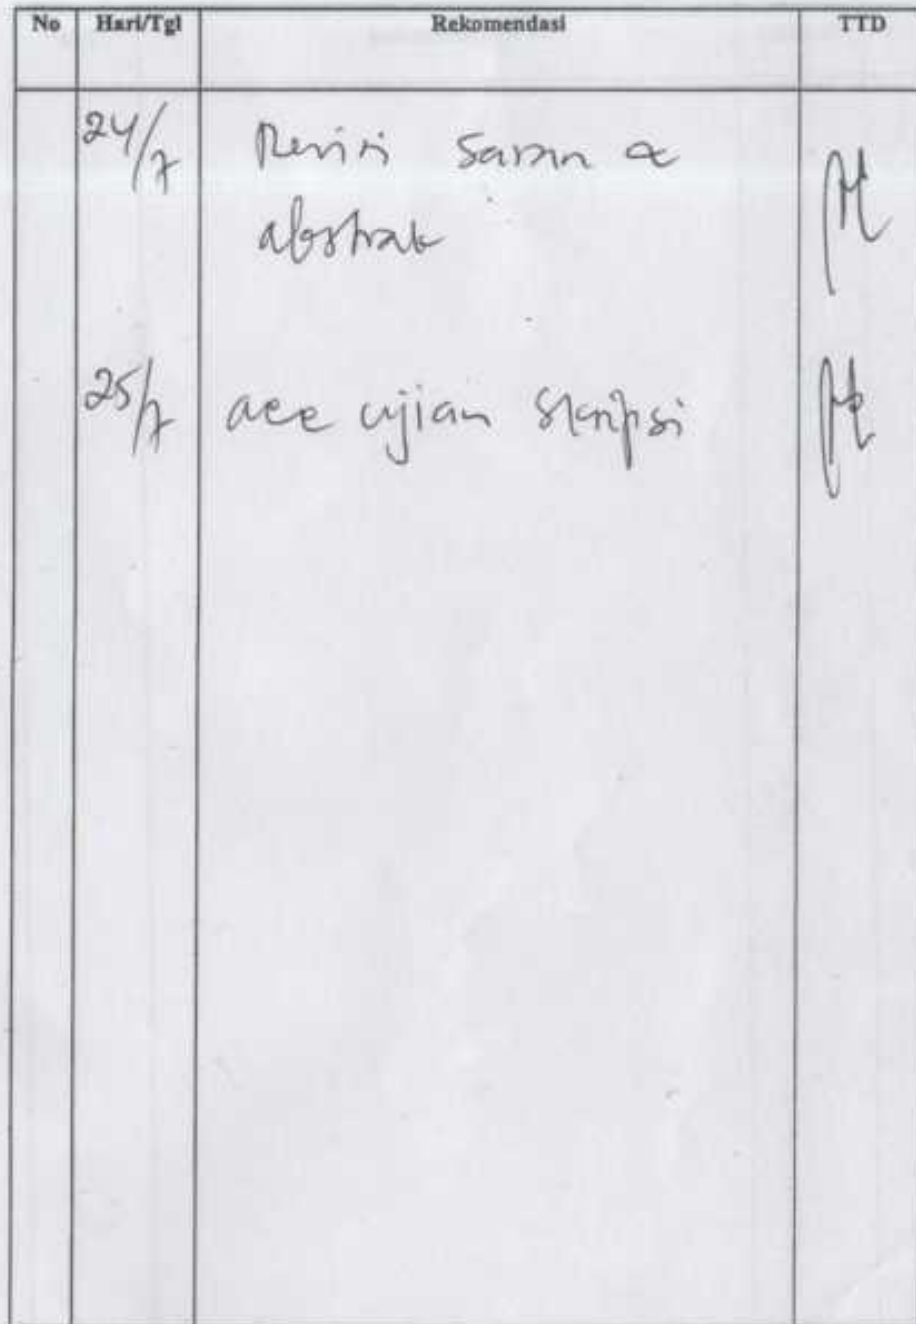 No Hari/Tgl Rekomendasi TTD
24/7 Revisi saran &
abstrak
25/7 acc ujian skripsi